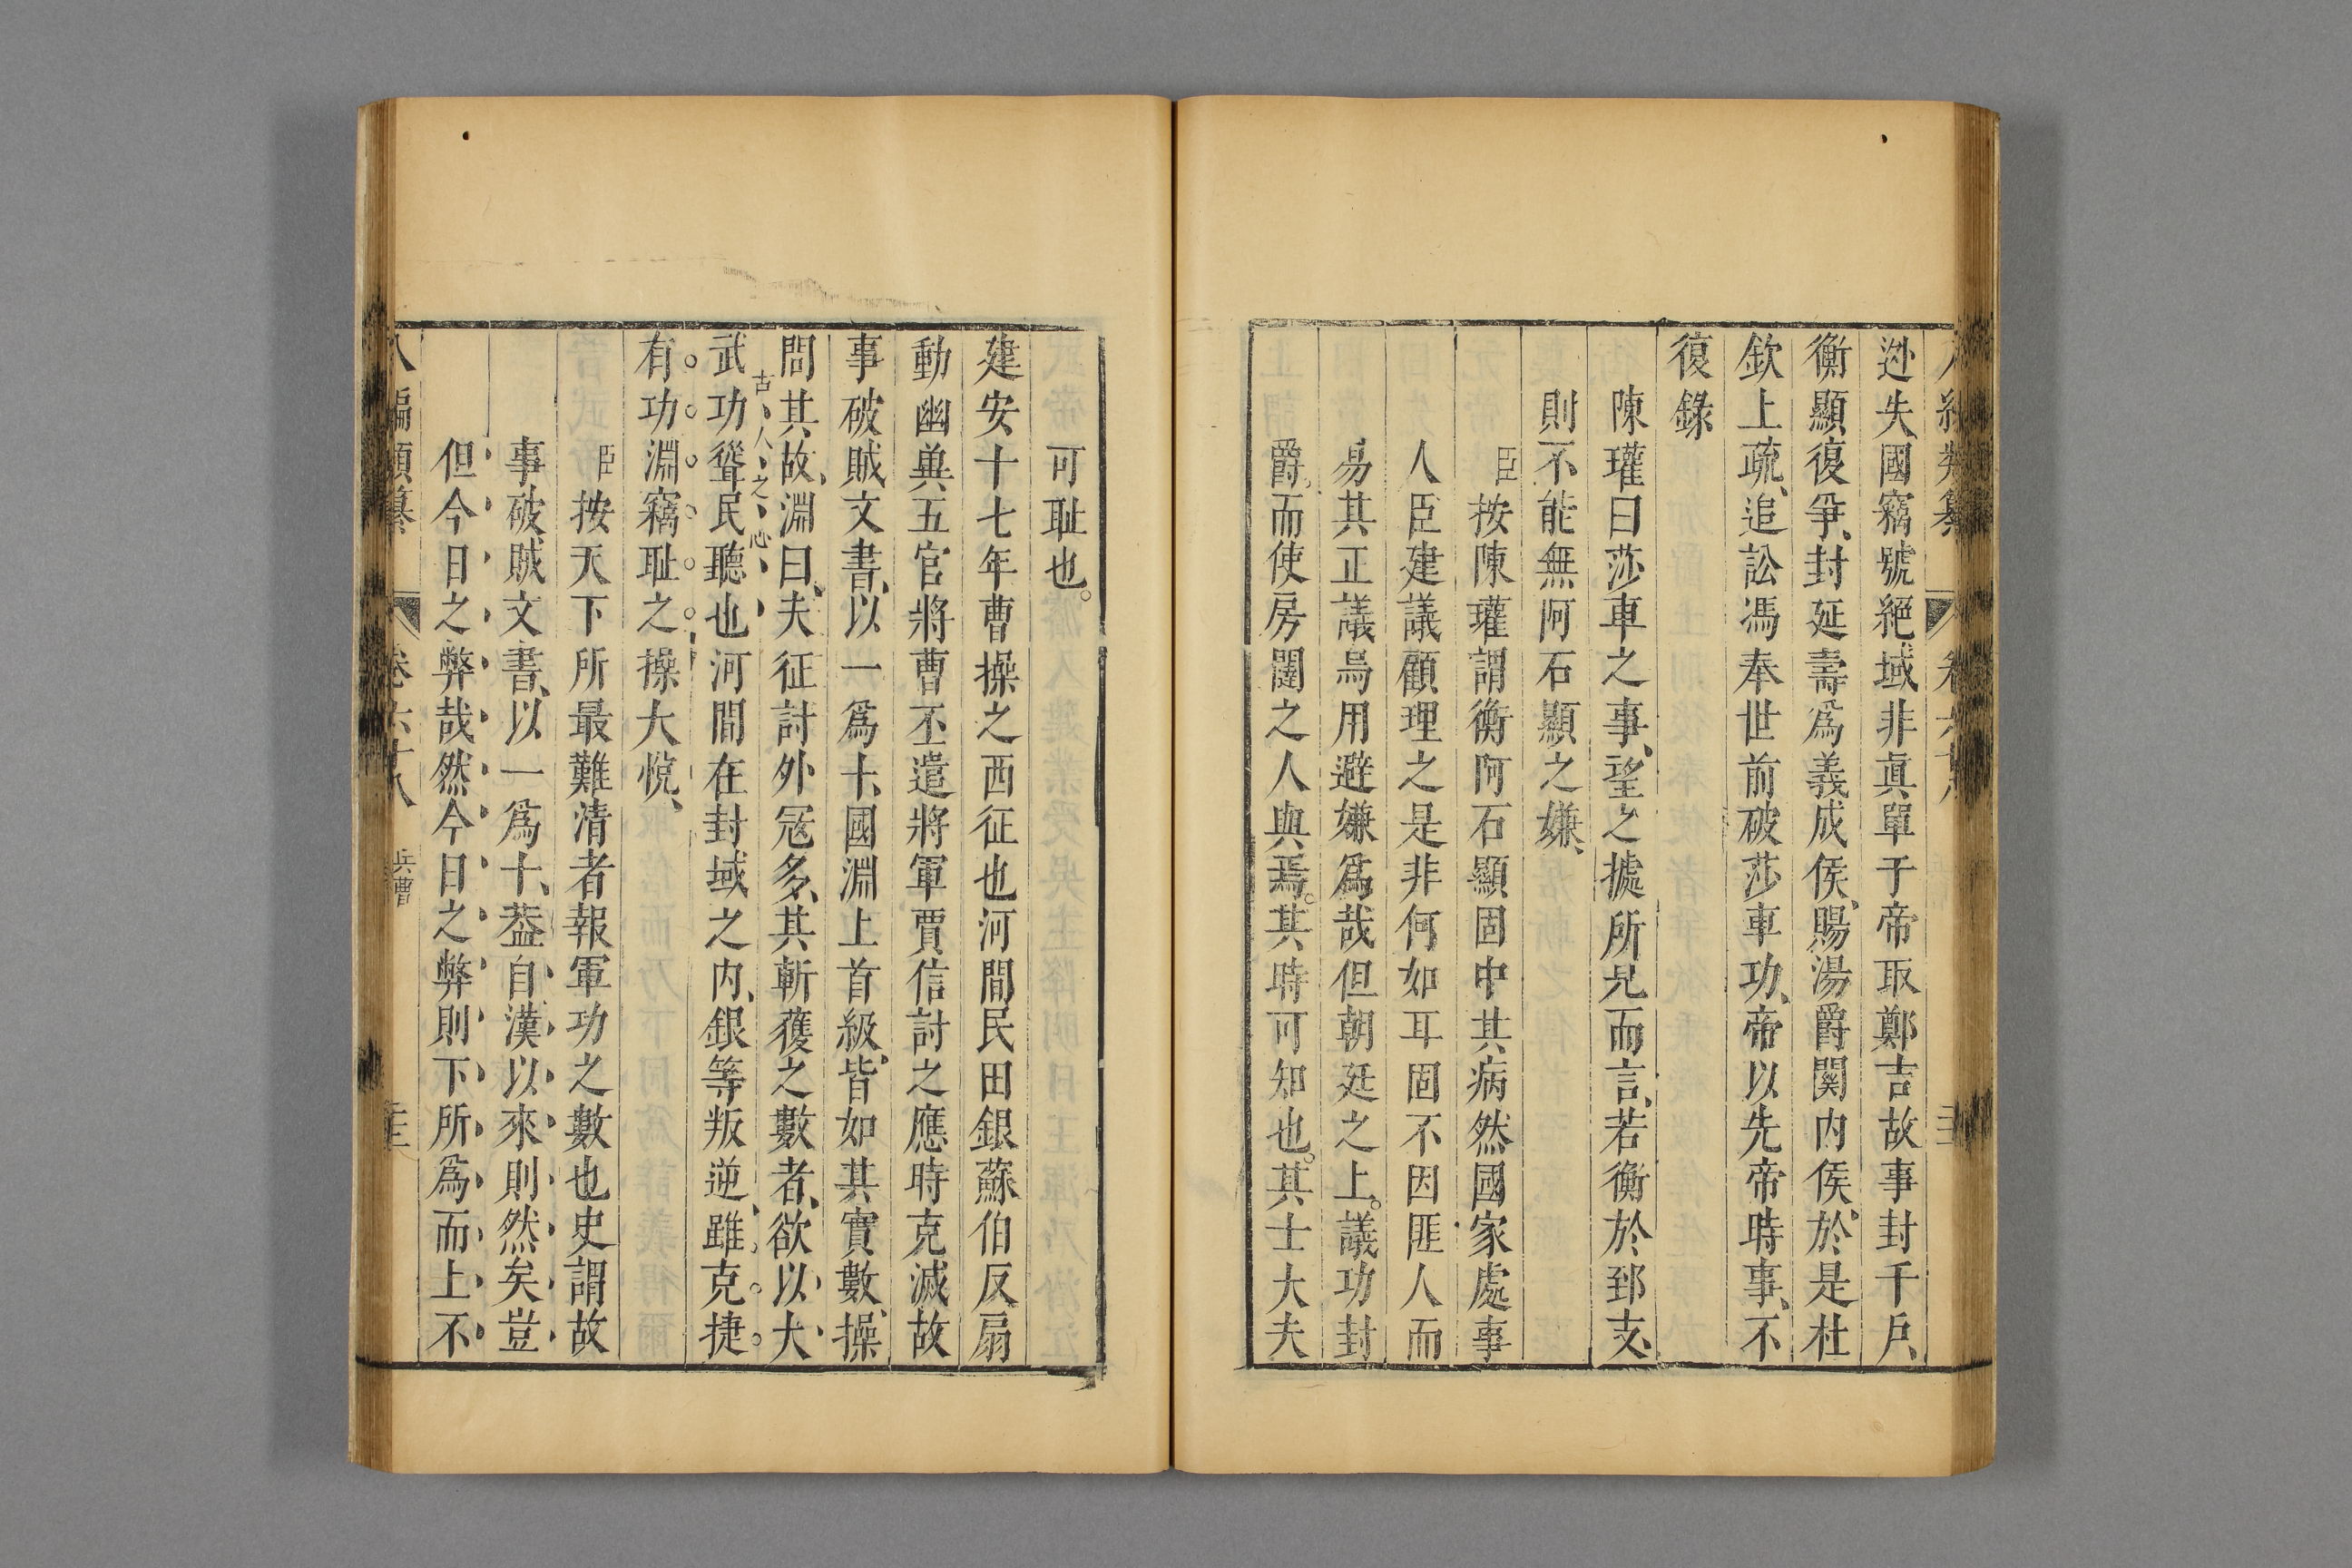 逃失國竊號絕域非眞單于帝取鄭吉故事封千戶、
衡顯復爭、封延壽爲義成侯、賜湯爵関内侯、於是杜
欽上疏、追訟馮奉世前破莎車功、帝以先帝時事、不
復錄
陳瓘曰莎車之事、望之據所見而言、若衡於郅支、
則不能無阿石顯之嫌、
臣按陳瓘謂衡阿石顯固中其病然國家處事
人臣建議顧理之是非何如耳固不因匪人而
易其正議烏用避嫌爲哉但朝廷之上。議功封
爵。而使房闥之人與焉。其時可知也。其士大夫
可耻也。
建安十七年曹操之西征也河間民田銀蘇伯反扇
動幽兾五官將曹丕遣將軍賈信討之應時克滅故
事破賊文書、以一爲十、國淵上首級、皆如其實數、操
問其故、淵曰、夫征討外寇多、其斬獲之數者、欲以大
古人之心
武功聳民聽也河間在封域之内、銀等叛逆、雖克捷
有功淵竊耻之操大悅、
臣按天下所最難清者報軍功之數也史謂故
事破賊文書、以一爲十、葢自漢以來則然矣豈
但今日之弊哉然今日之弊則下所爲而上不
八編類纂 卷六十八 兵曹